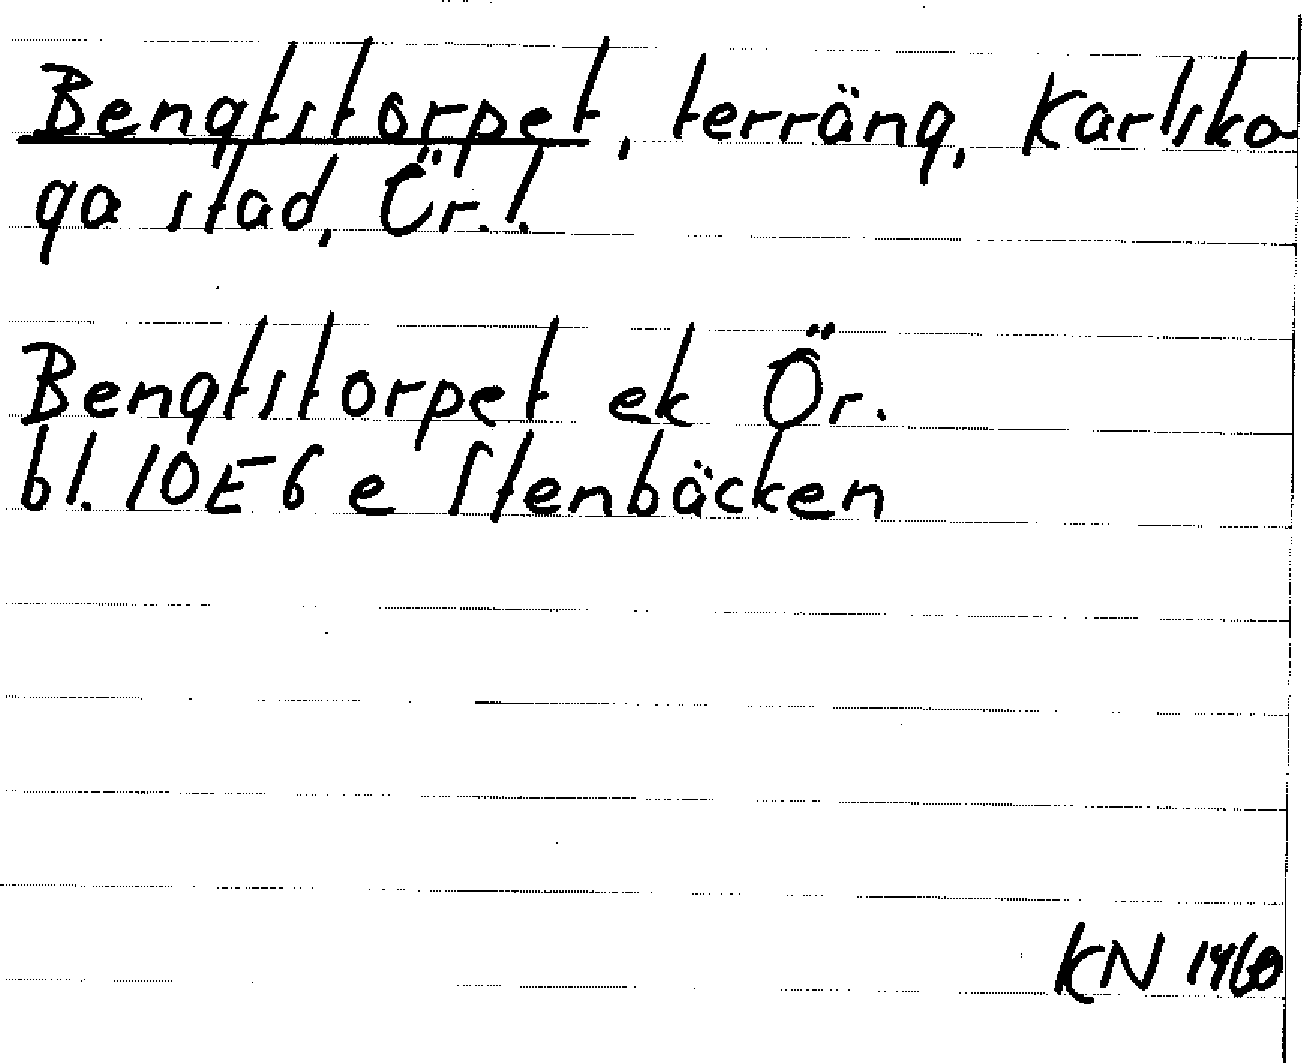 Bengtstorpet, terräng, Karlsko-
ga stad, Ör.l.
Bengtstorpet ek Ör.
bl. 10E6e Stenbäcken
KN 1960